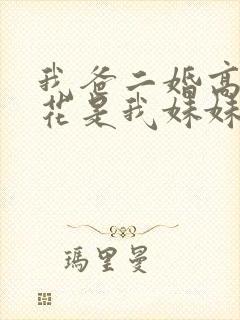 我爸二婚高
花是我妹妹
玛里曼